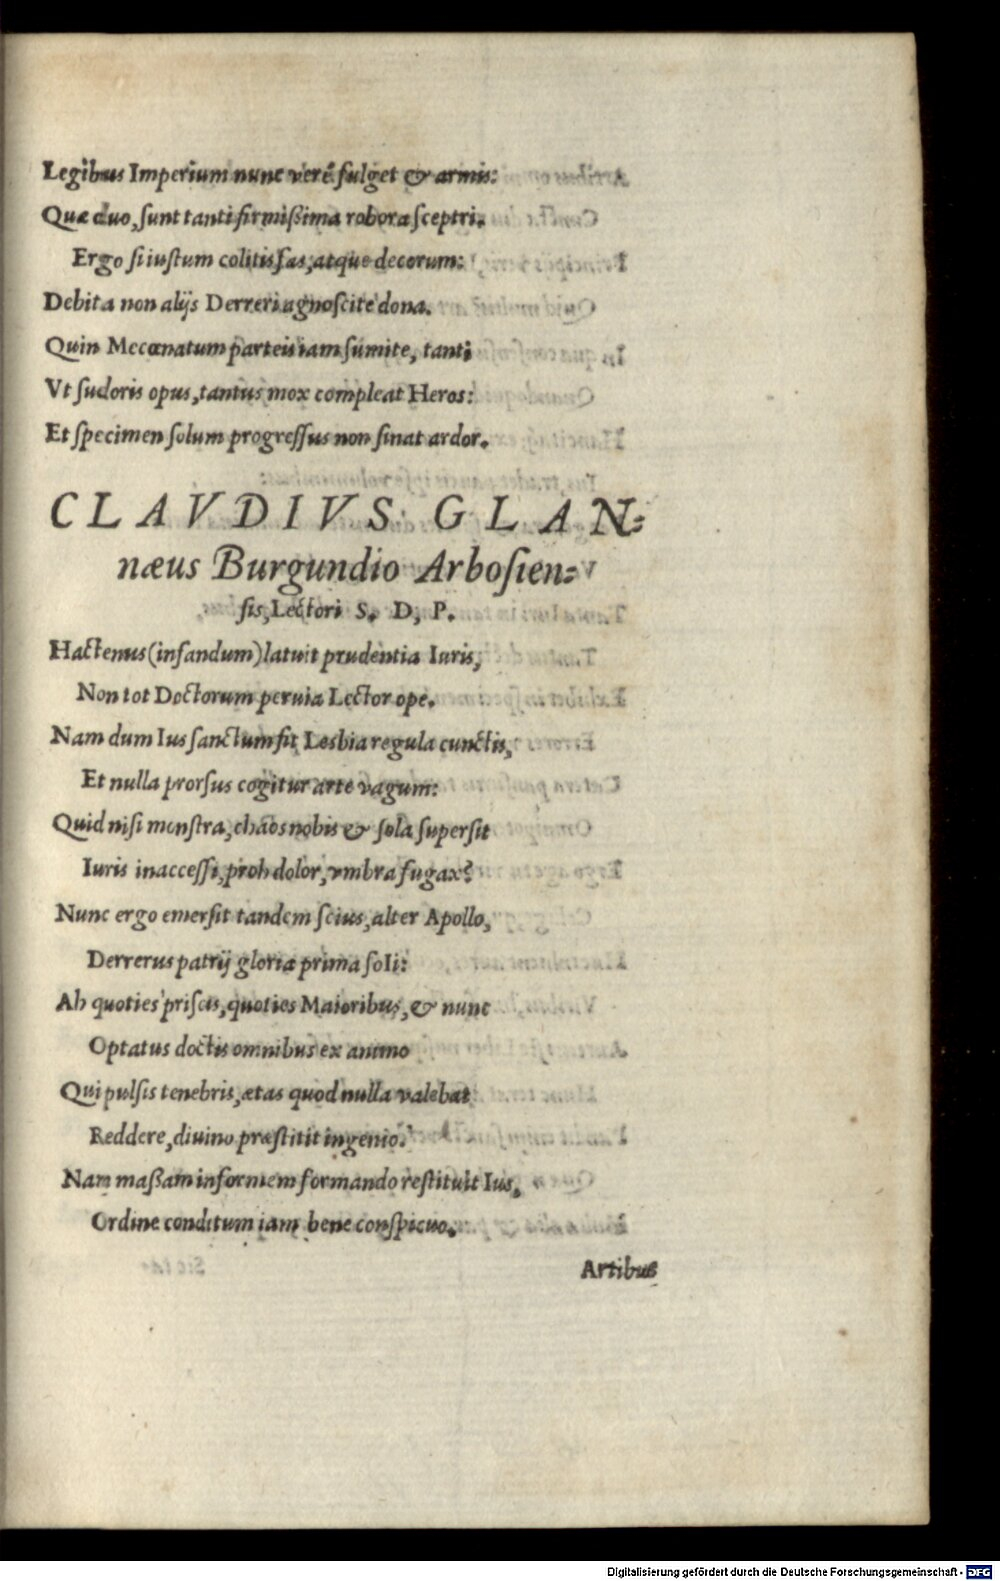 Legibus Imperium nunc verè fulget & armis:
Quæ duo, ſunt tanti firmißima robora ſceptri.
Ergo ſi iuſtum colitis, fas, atque decorum:
Debita non alijs Derreri agnoſcite dona.
Quin Mecœnatum parteis iam ſumite, tanti
Vt ſudoris opus, tantus mox compleat Heros:
Et ſpecimen ſolum progreſſus non ſinat ardor.
CLAVDIVS GLAN-
næus Burgundio Arboſien-
ſis, Lectori S. D, P.
Hactenus (infandum) latuit prudentia Iuris,
Non tot Doctorum peruia Lector ope.
Nam dum Ius ſanctum fit Lesbia regula cunctis,
Et nulla prorſus cogitur arte vagum:
Quid niſi monſtra, chaos nobis & ſola ſuperſit
Iuris inacceſſi, proh dolor, vmbra fugax?
Nunc ergo emerſit tandem ſcius, alter Apollo,
Derrerus patrij gloria prima ſoli:
Ah quoties priſcis, quoties Maioribus, & nunc
Optatus doctis omnibus ex animo
Qui pulſis tenebris, ætas quod nulla valebat
Reddere, diuino præſtitit ingenio.
Nam maßam informem formando reſtituit Ius,
Ordine conditum iam bene conſpicuo.
Artibus
Digitalisierung gefördert durch die Deutsche Forschungsgemeinschaft - DFG